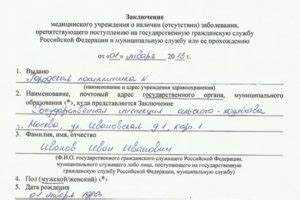 Заключение
медицинского учреждения о наличии (отсутствии) заболевания,
препятствующего поступлению на государственную гражданскую службу
Российской Федерации и муниципальную службу или ее прохождению
от «01» января 20 г.
1. Выдано
Городская поликлиника
(наименование и адрес учреждения здравоохранения)
2. Наименование, почтовый адрес государственного органа, муниципального
образования (*), куда представляется Заключение
Государственная инспекция
г. Москва, ул. Ивановская д.1, корп. 1
3. Фамилия, имя, отчество
Иванов Иван Иванович
(Ф.И.О. государственного гражданского служащего Российской Федерации,
муниципального служащего либо лица, поступающего на государственную
гражданскую службу Российской Федерации,
муниципальную службу)
4. Пол (мужской/женский) (*)
5. Дата рождения
01 января